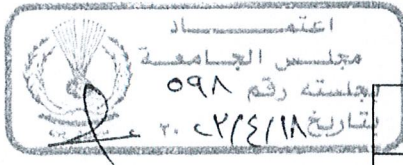 اعتمـــــاد
مجلـــس الجـــامعـــة
بجلسته رقم ٥٩٨
بتاريخ ٢٠٢٢/٤/١٨